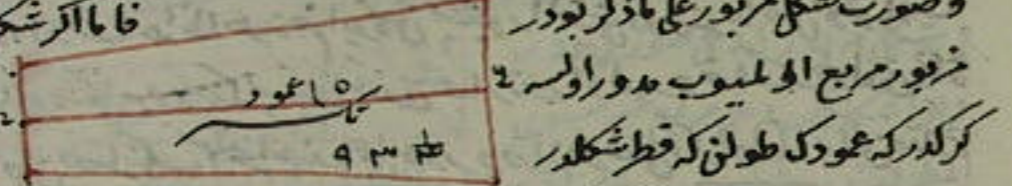 وصورت شكل مزبور على ما ذكر بودر
مزبور مربع اولميوب مدور اولسه
كركدركه عمودك طولنى كه قطر شكلدر
فاما اكر شكل
عمود
٩٣